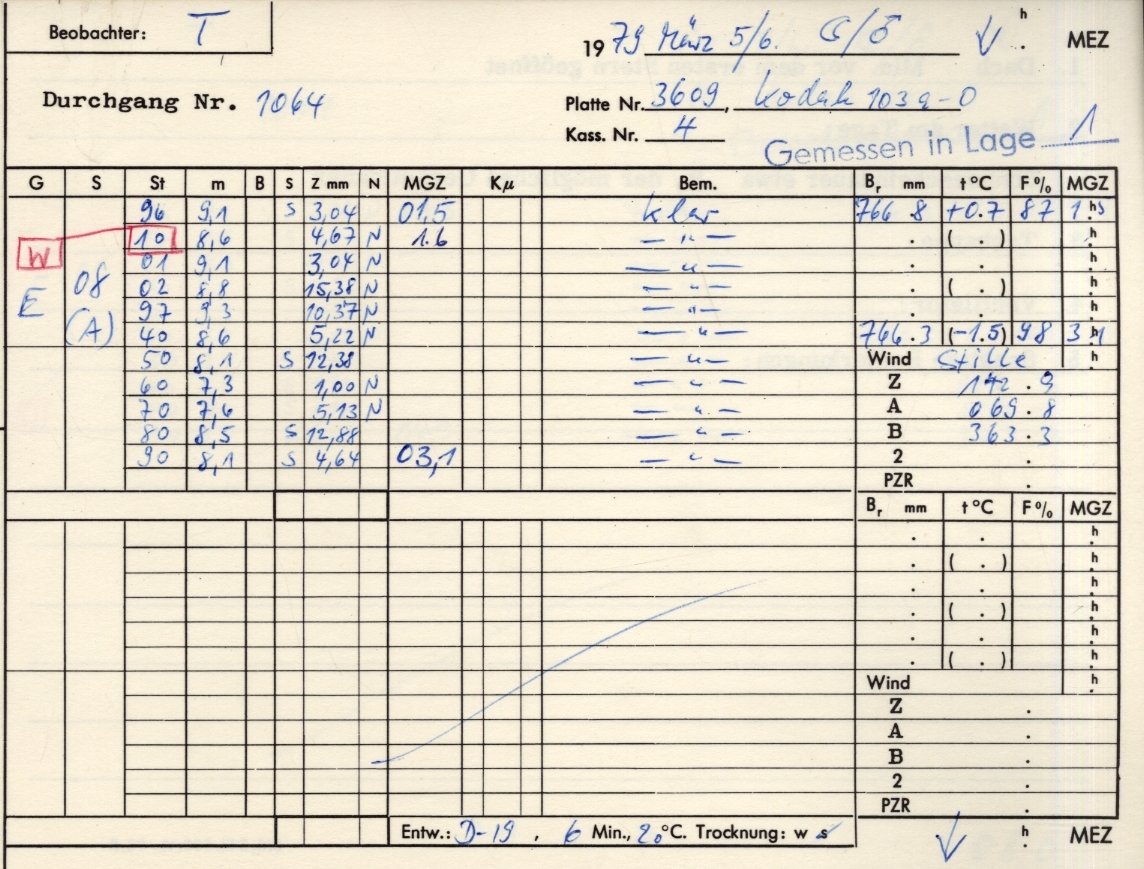 Beobachter: T
1979 März 5/6. G/♂ h MEZ
Durchgang Nr. 1064
Platte Nr. 3609, Kodak 103a-O
Kass. Nr. 4
Gemessen in Lage 1
G S St m B S Z mm N MGZ Kμ Bem. Br mm t °C F % MGZ
96 9,1 S 3,04 01,5 klar 766.8 +0.7 87 1.h5
W 10 8,6 4,67 N 1.6 — " — . ( . ) h
01 9,1 3,04 N — " — . . h
E 08 02 8,8 15,38 N — " — . ( . ) h
97 9,3 10,37 N — " — . . h
(A) 40 8,6 5,22 N — " — 766.3 (-1.5) 98 3.h1
50 8,1 S 12,38 — " — Wind Stille h
60 7,3 1,00 N — " — Z 142.9
70 7,6 5,13 N — " — A 069.8
80 8,5 S 12,88 — " — B 363.3
90 8,1 S 4,64 03,1 — " — 2 .
PZR .
Br mm t °C F % MGZ
. . h
. ( . ) h
. . h
. ( . ) h
. . h
. ( . ) h
Wind h
Z .
A .
B .
2 .
PZR .
Entw.: D-19, 6 Min., 20 °C. Trocknung: w s h MEZ